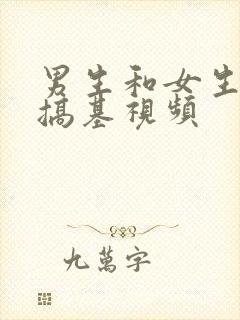 男生和女生
搞基視頻
九萬字